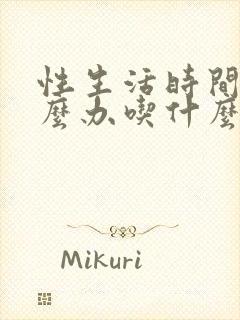 性生活時間
麼办喫什麼
Mikuri